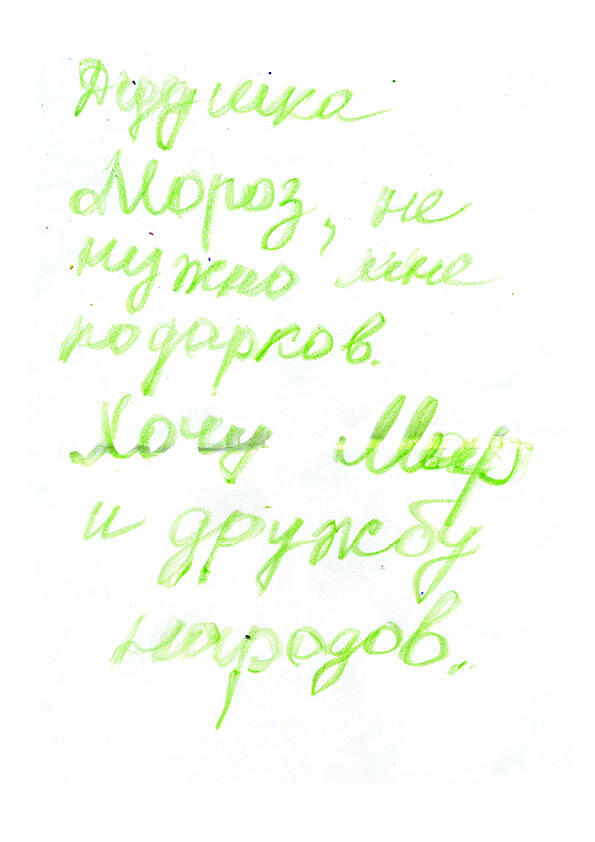 Дідушка
Мороз, не
нужно мне
подарков.
Хочу Мир
и дружбу
народов..